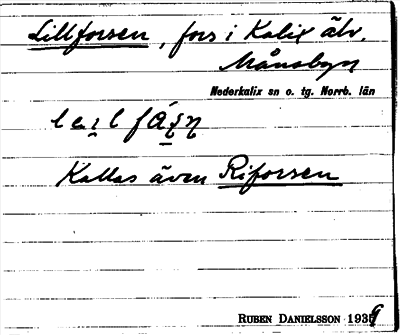 Lillforsen, fors i Kalix älv.
Månsbyn
Nederkalix sn o. tg. Norrb. län
Kallas även Riforsen
RUBEN DANIELSSON 1939